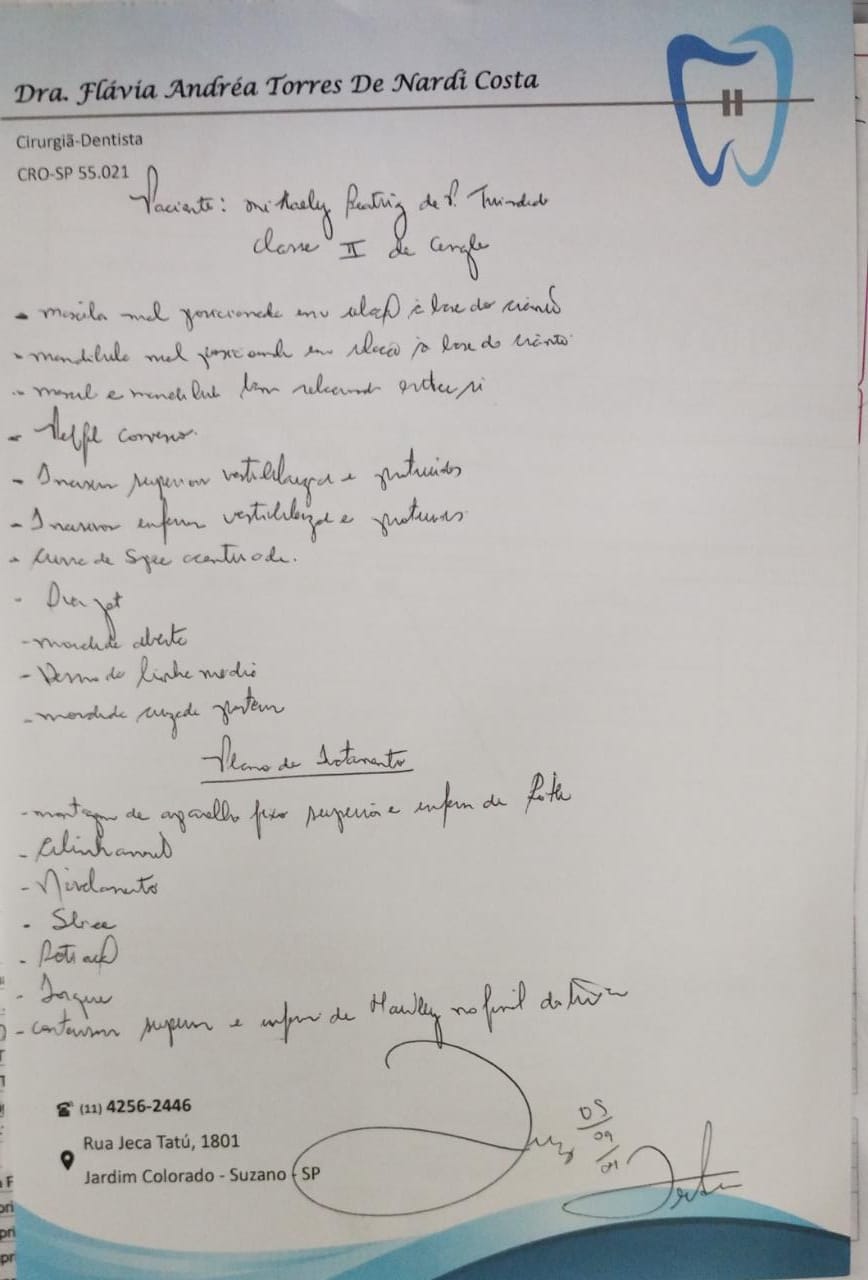 Dra. Flávia Andréa Torres De Nardi Costa
Cirurgiã-Dentista
CRO-SP 55.021
Paciente: Mikaely Beatriz de
Classe II de Angle
- maxila mal posicionada em relação à base do crânio
- mandíbula mal posicionada em relação à base do crânio
- e mandíbula bem relacionada entre si
- Perfil convexo.
- Incisivo superior vestibularizado e protruídos
- Incisivo inferior vestibularizado e protruídos
- Curva de Spee acentuada.
- Over jet
- mordida aberta
- Desvio de linha média
- mordida cruzada posterior
Plano de Tratamento
- montagem de aparelho fixo superior e inferior de Roth
- Alinhamento
- Nivelamento
-
- Retração
- Torque
- contensor superior e inferior de Hawley no final do
(11) 4256-2446
Rua Jeca Tatú, 1801
Jardim Colorado - Suzano - SP